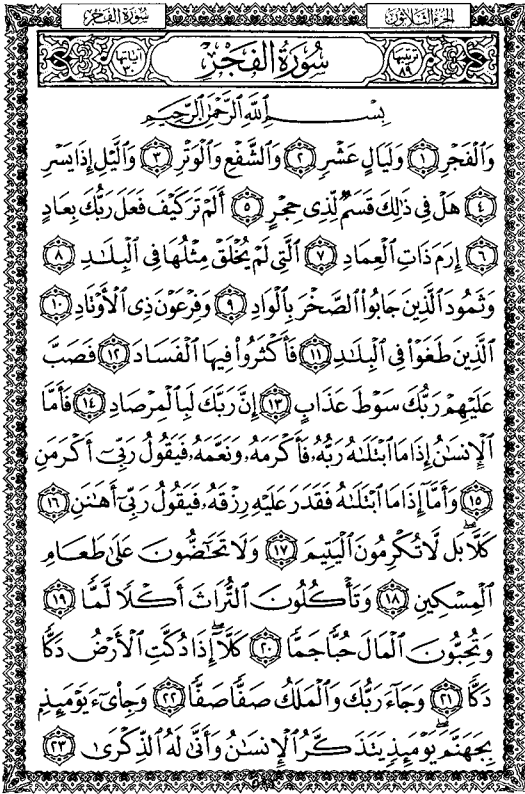 الجزء الثلاثون سورة الفجر
ترتيبها ٨٩ سُورَةُ الفَجْرِ آياتها ٣٠
بِسْمِ اللَّهِ الرَّحْمَٰنِ الرَّحِيمِ
وَالْفَجْرِ ١ وَلَيَالٍ عَشْرٍ ٢ وَالشَّفْعِ وَالْوَتْرِ ٣ وَاللَّيْلِ إِذَا يَسْرِ
٤ هَلْ فِي ذَٰلِكَ قَسَمٌ لِّذِي حِجْرٍ ٥ أَلَمْ تَرَ كَيْفَ فَعَلَ رَبُّكَ بِعَادٍ
٦ إِرَمَ ذَاتِ الْعِمَادِ ٧ الَّتِي لَمْ يُخْلَقْ مِثْلُهَا فِي الْبِلَٰدِ ٨
وَثَمُودَ الَّذِينَ جَابُوا الصَّخْرَ بِالْوَادِ ٩ وَفِرْعَوْنَ ذِي الْأَوْتَادِ ١٠
الَّذِينَ طَغَوْا فِي الْبِلَٰدِ ١١ فَأَكْثَرُوا فِيهَا الْفَسَادَ ١٢ فَصَبَّ
عَلَيْهِمْ رَبُّكَ سَوْطَ عَذَابٍ ١٣ إِنَّ رَبَّكَ لَبِالْمِرْصَادِ ١٤ فَأَمَّا
الْإِنسَٰنُ إِذَا مَا ابْتَلَىٰهُ رَبُّهُۥ فَأَكْرَمَهُۥ وَنَعَّمَهُۥ فَيَقُولُ رَبِّي أَكْرَمَنِ
١٥ وَأَمَّا إِذَا مَا ابْتَلَىٰهُ فَقَدَرَ عَلَيْهِ رِزْقَهُۥ فَيَقُولُ رَبِّي أَهَٰنَنِ ١٦
كَلَّا بَل لَّا تُكْرِمُونَ الْيَتِيمَ ١٧ وَلَا تَحَٰضُّونَ عَلَىٰ طَعَامِ
الْمِسْكِينِ ١٨ وَتَأْكُلُونَ التُّرَاثَ أَكْلًا لَّمًّا ١٩
وَتُحِبُّونَ الْمَالَ حُبًّا جَمًّا ٢٠ كَلَّا إِذَا دُكَّتِ الْأَرْضُ دَكًّا
دَكًّا ٢١ وَجَاءَ رَبُّكَ وَالْمَلَكُ صَفًّا صَفًّا ٢٢ وَجِا۟يءَ يَوْمَئِذٍ
بِجَهَنَّمَ يَوْمَئِذٍ يَتَذَكَّرُ الْإِنسَٰنُ وَأَنَّىٰ لَهُ الذِّكْرَىٰ ٢٣